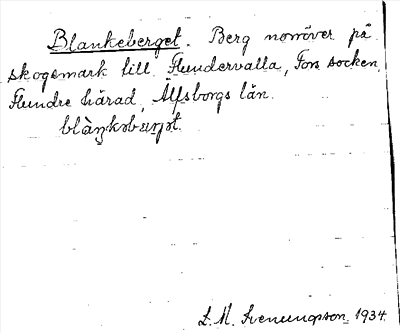 Blankeberget. Berg norröver på
skogsmark till Flundervalla, Fors socken,
Flundre härad, Älfsborgs län.
L. M. Svenungsson. 1934.